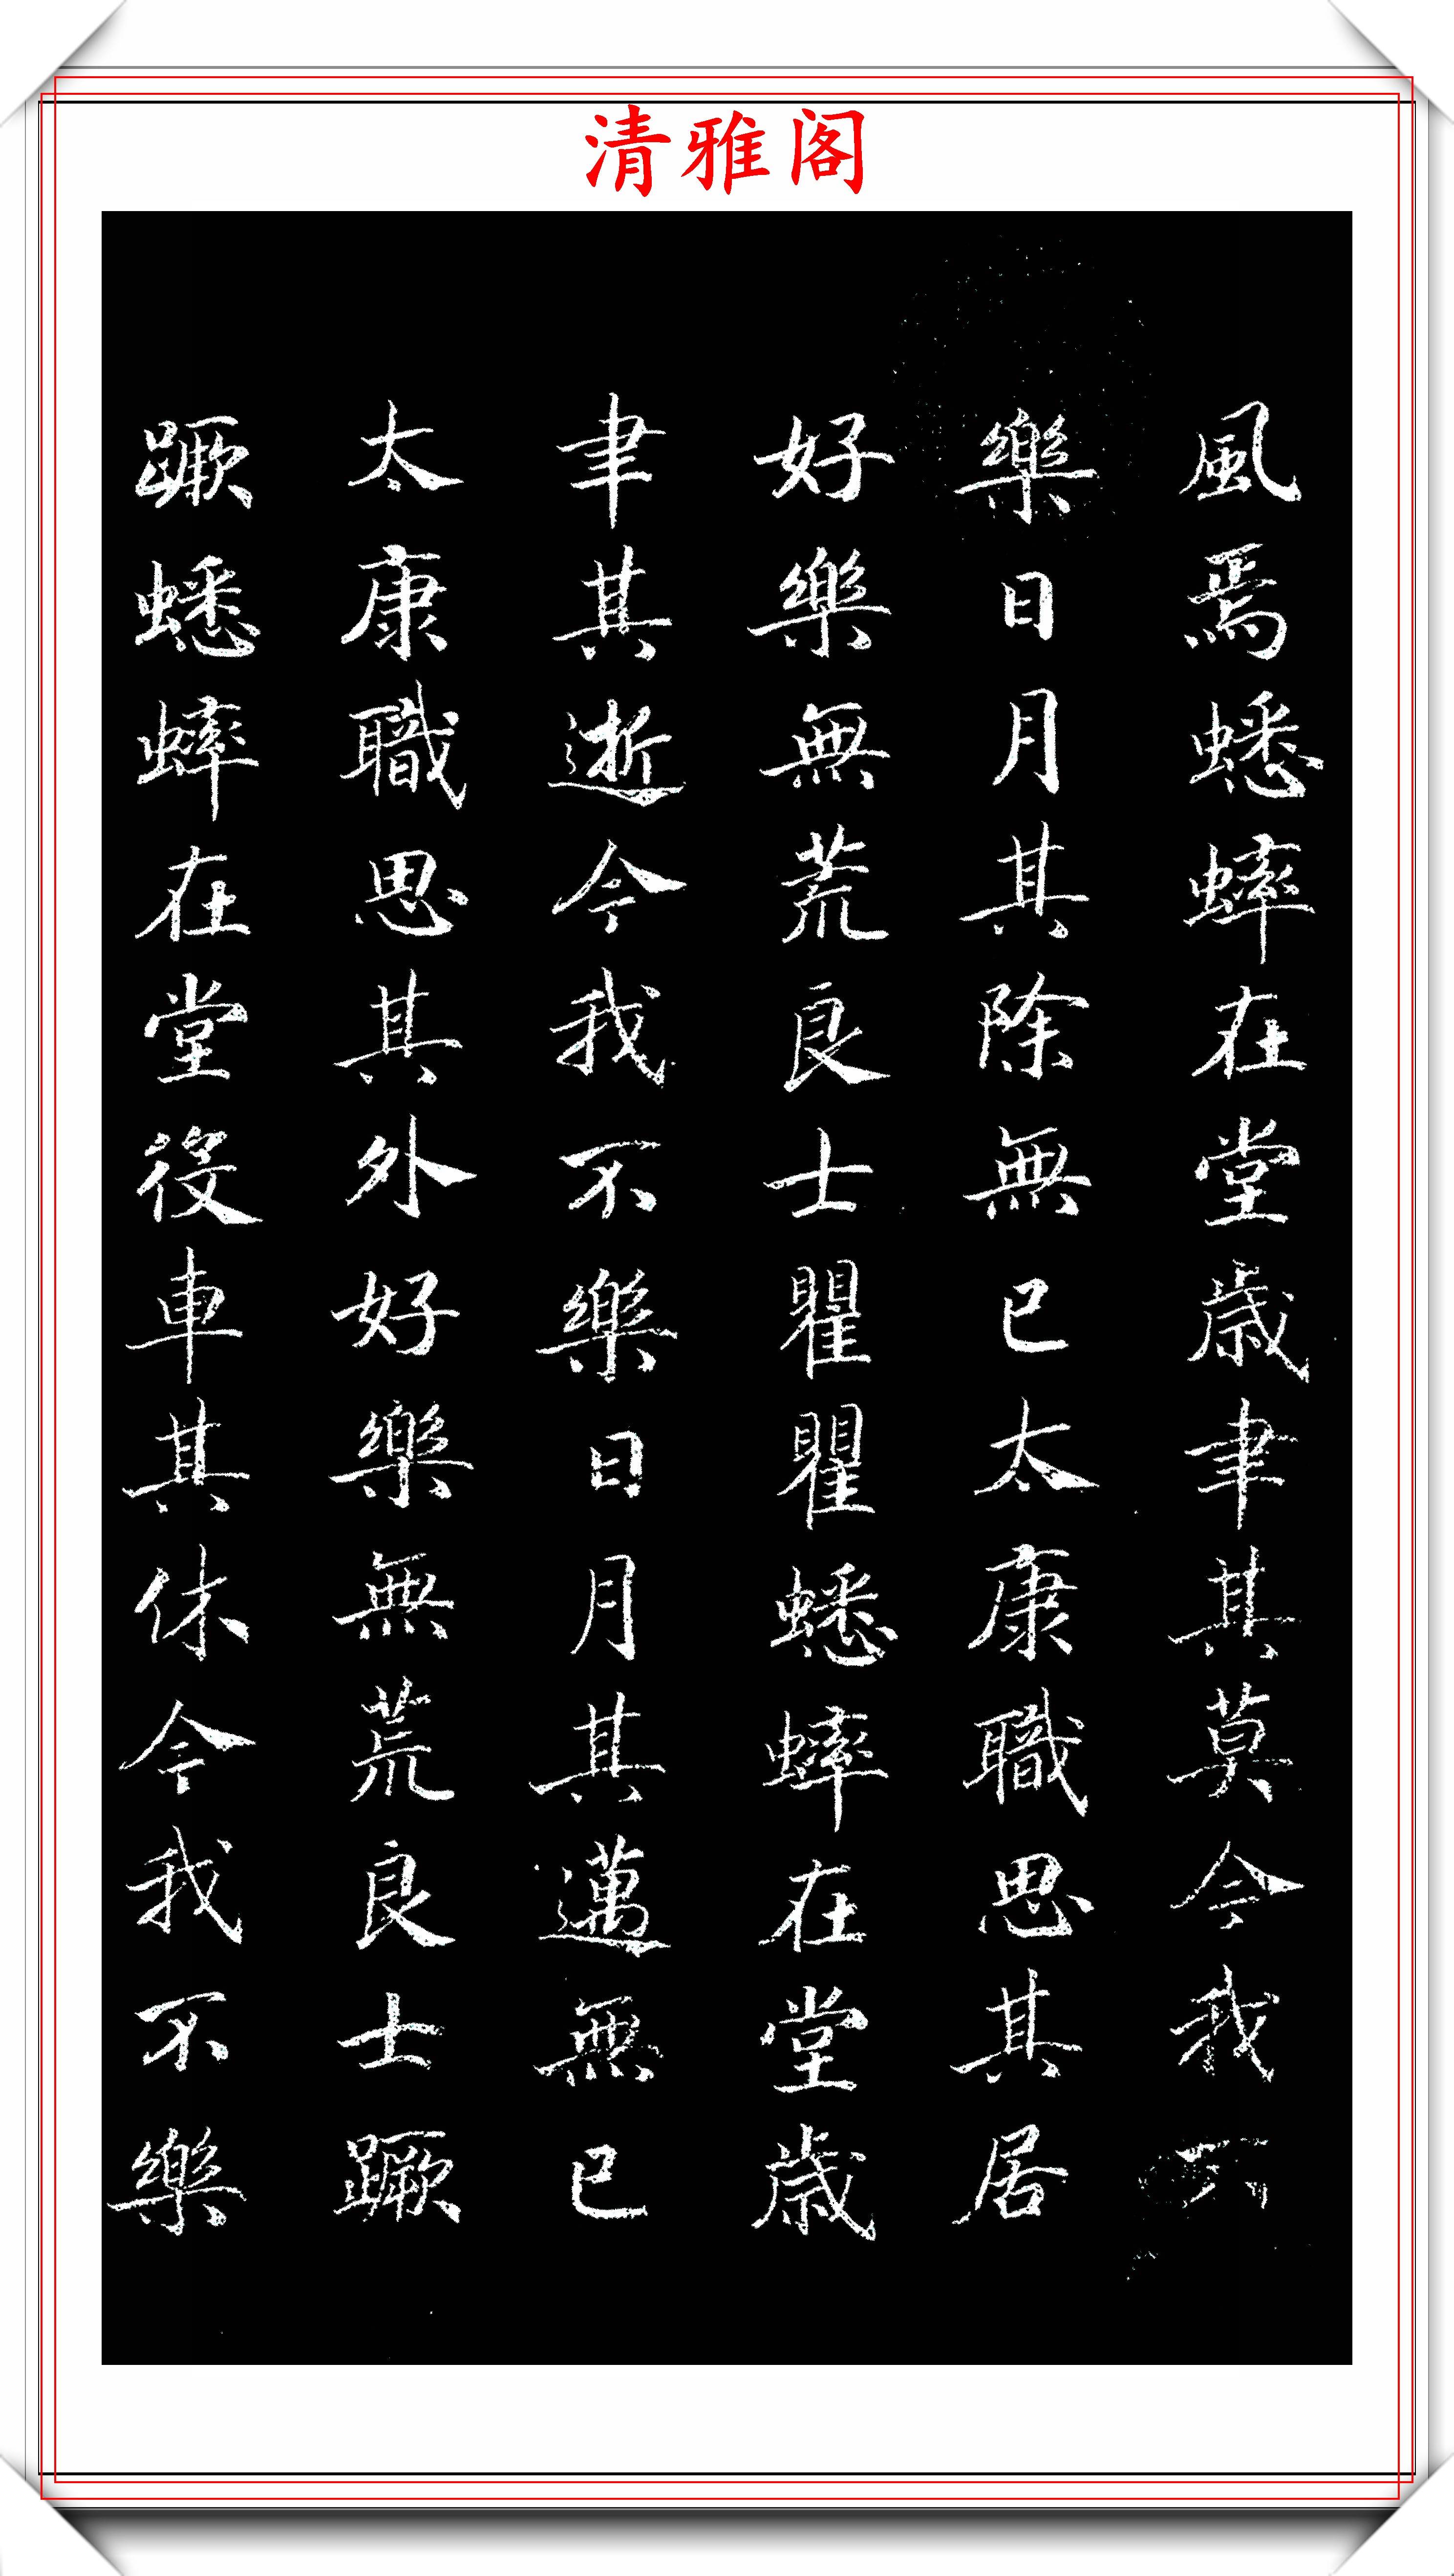 清雅阁
風焉蟋蟀在堂歲聿其莫今我不
樂日月其除無已太康職思其居
好樂無荒良士瞿瞿蟋蟀在堂歲
聿其逝今我不樂日月其邁無已
太康職思其外好樂無荒良士蹶
蹶蟋蟀在堂役車其休今我不樂